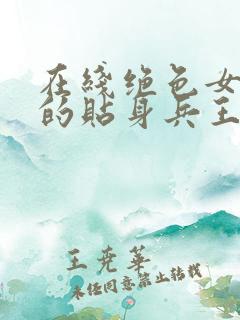 在綫绝色女
的貼身兵王
王尭華
未经同意禁止转载